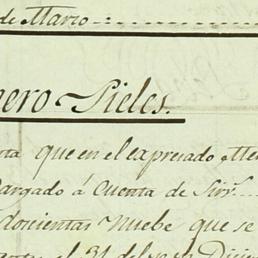 de Marzo
nero Pieles.
ta que en el expresado Me
Cargado á Cuenta de Sir
doscientas Nuebe que se
el 31 del